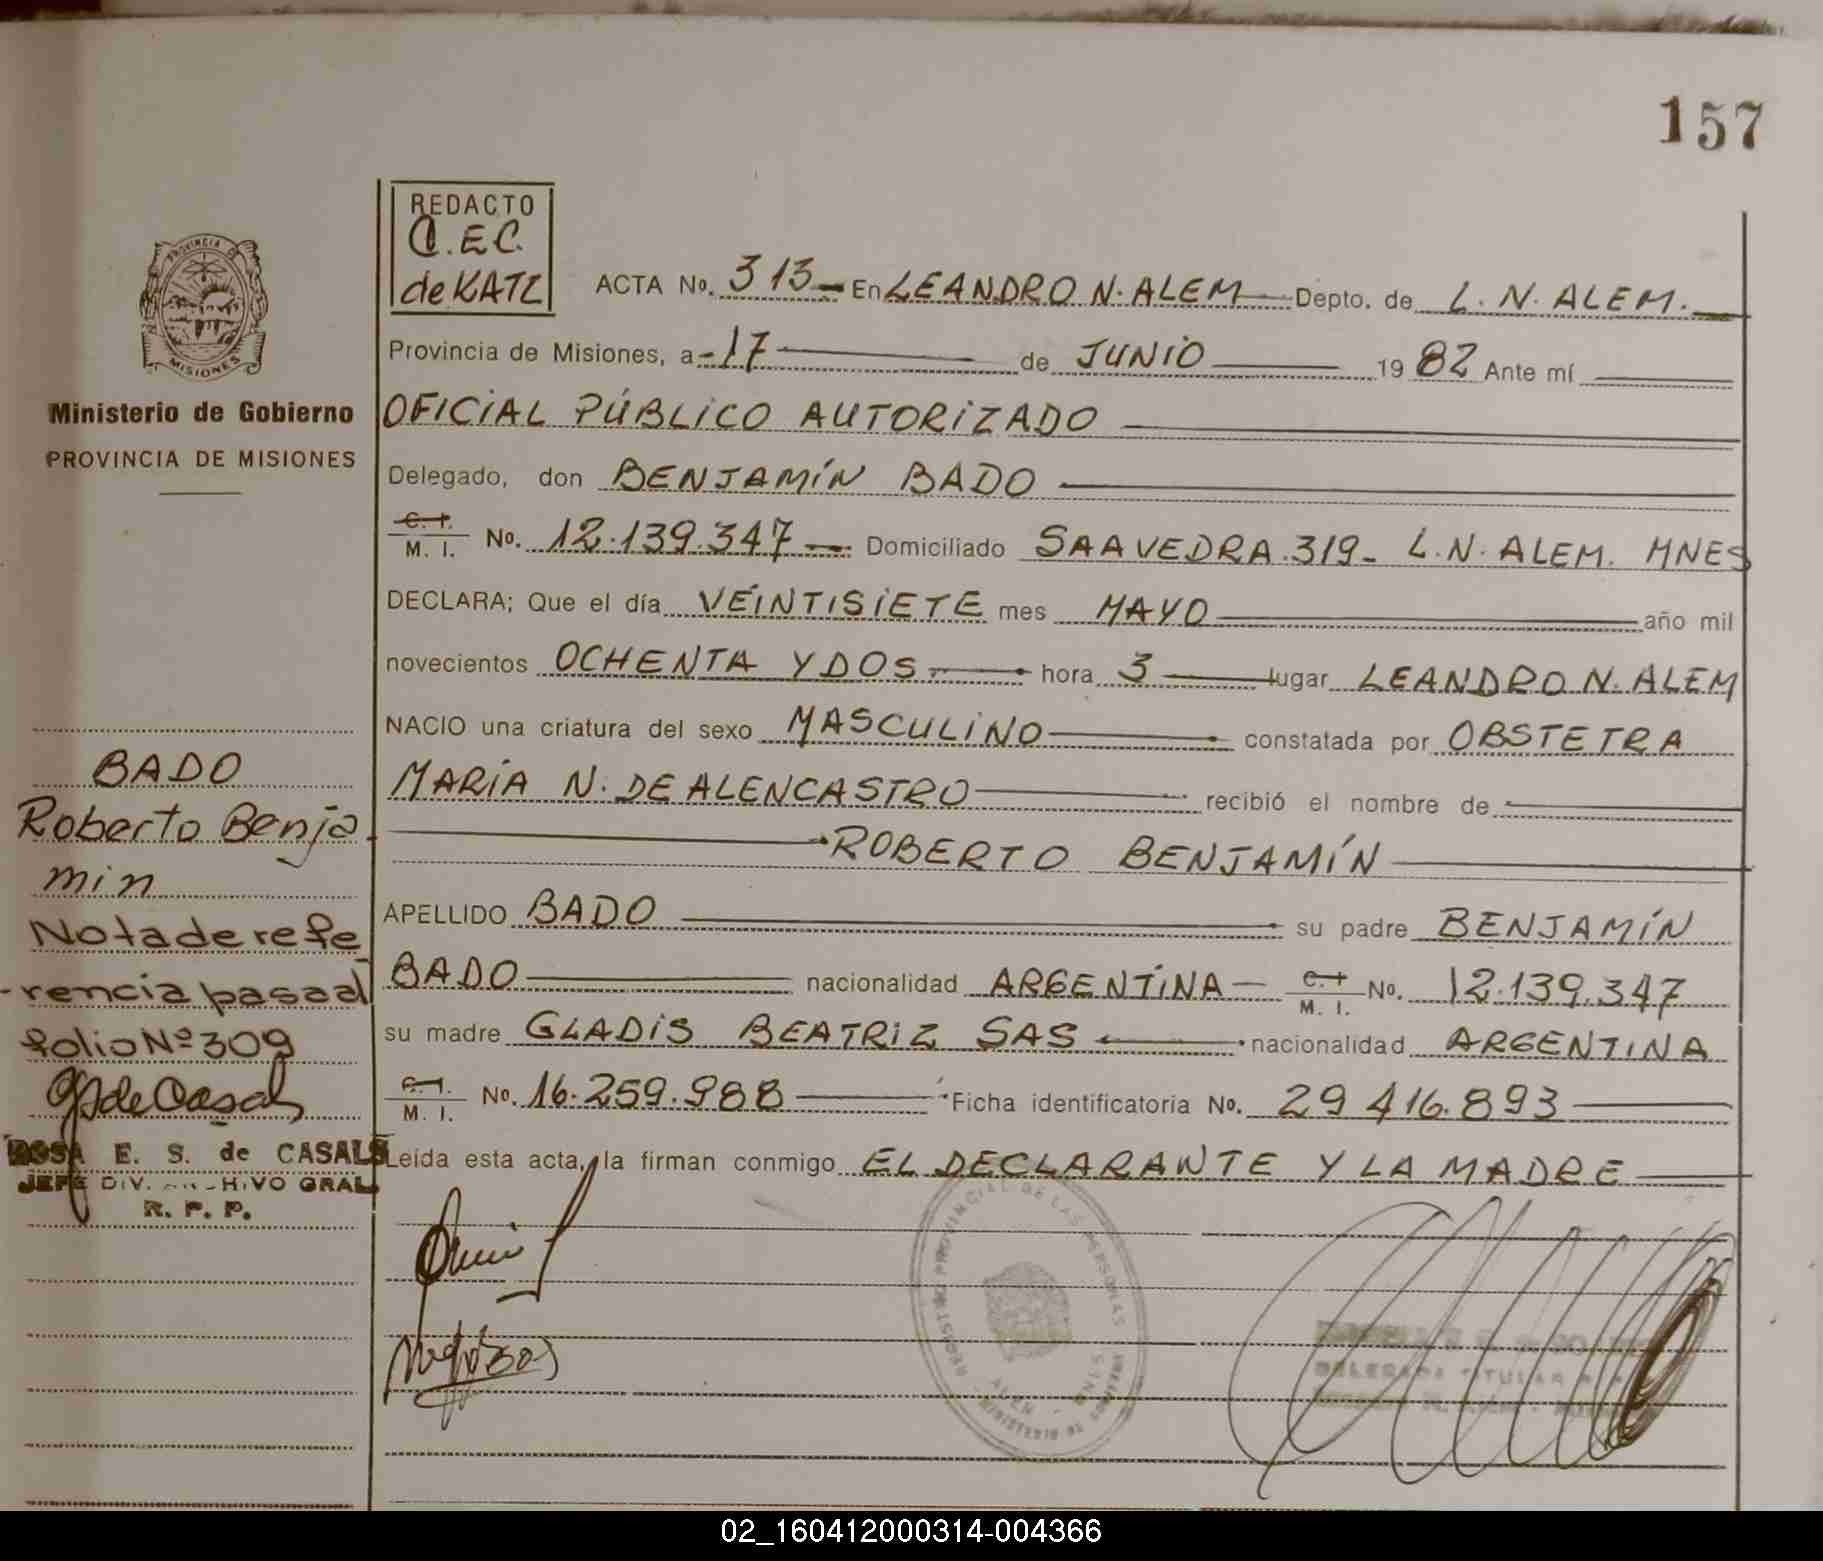 157
REDACTO
C.E.C.
de KATZ
ACTA No. 313 En LEANDRO N. ALEM Depto. de L. N. ALEM.
Provincia de Misiones, a 17 de JUNIO 1982 Ante mí
OFICIAL PÚBLICO AUTORIZADO
Delegado, don BENJAMÍN BADO
C. I.
M. I. No. 12.139.347 Domiciliado SAAVEDRA.319- L.N. ALEM. MNES
DECLARA; Que el día VEINTISIETE mes MAYO año mil
novecientos OCHENTA Y DOS hora 3 lugar LEANDRO N. ALEM
NACIO una criatura del sexo MASCULINO constatada por OBSTETRA
MARÍA N. DE ALENCASTRO recibió el nombre de
ROBERTO BENJAMÍN
APELLIDO BADO su padre BENJAMÍN
BADO nacionalidad ARGENTINA C. I. M. I. No. 12.139.347
su madre GLADIS BEATRIZ SAS nacionalidad ARGENTINA
C. I. M. I. No. 16.259.988 Ficha identificatoria No. 29 416.893
Leída esta acta, la firman conmigo EL DECLARANTE Y LA MADRE
PROVINCIA DE
MISIONES
Ministerio de Gobierno
PROVINCIA DE MISIONES
BADO
Roberto Benja
min
Nota de refe
rencia pasa al
folio Nº 309
de Casals
ROSA E. S. de CASALS
JEFE DIV. ARCHIVO GRAL.
R. P. P.
REGISTRO PROVINCIAL DE LAS PERSONAS
ALEM - MNES
MINISTERIO DE GOBIERNO
DELEGADA TITULAR
02_160412000314-004366